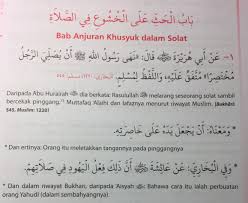 بَابُ الْحَثِّ عَلَى الْخُشُوعِ فِي الصَّلَاةِ
Bab Anjuran Khusyuk dalam Solat
١- عَنْ أَبِي هُرَيْرَةَ ﷺ قَالَ: «نَهَى رَسُولُ اللَّهِ ﷺ أَنْ يُصَلِّيَ الرَّجُلُ
مُخْتَصِرًا» مُتَّفَقٌ عَلَيْهِ، وَاللَّفْظُ لِمُسْلِمٍ.
Daripada Abu Hurairah dia berkata: Rasulullah ﷺ melarang seseorang solat sambil
bercekak pinggang. Muttafaq 'Alaih dan lafaznya menurut riwayat Muslim. (Bukhari
545, Muslim: 1220)
* وَمَعْنَاهُ: أَنْ يَجْعَلَ يَدَهُ عَلَى خَاصِرَتِهِ.
* Dan ertinya: Orang itu meletakkan tangannya pada pinggangnya
* وَفِي الْبُخَارِيِّ: عَنْ عَائِشَةَ أَنَّ ذَلِكَ فِعْلُ الْيَهُودِ فِي صَلَاتِهِمْ.
* Dan dalam riwayat Bukhari, daripada 'Aisyah Bahawa cara itu ialah perbuatan
orang Yahudi (dalam sembahyangnya).